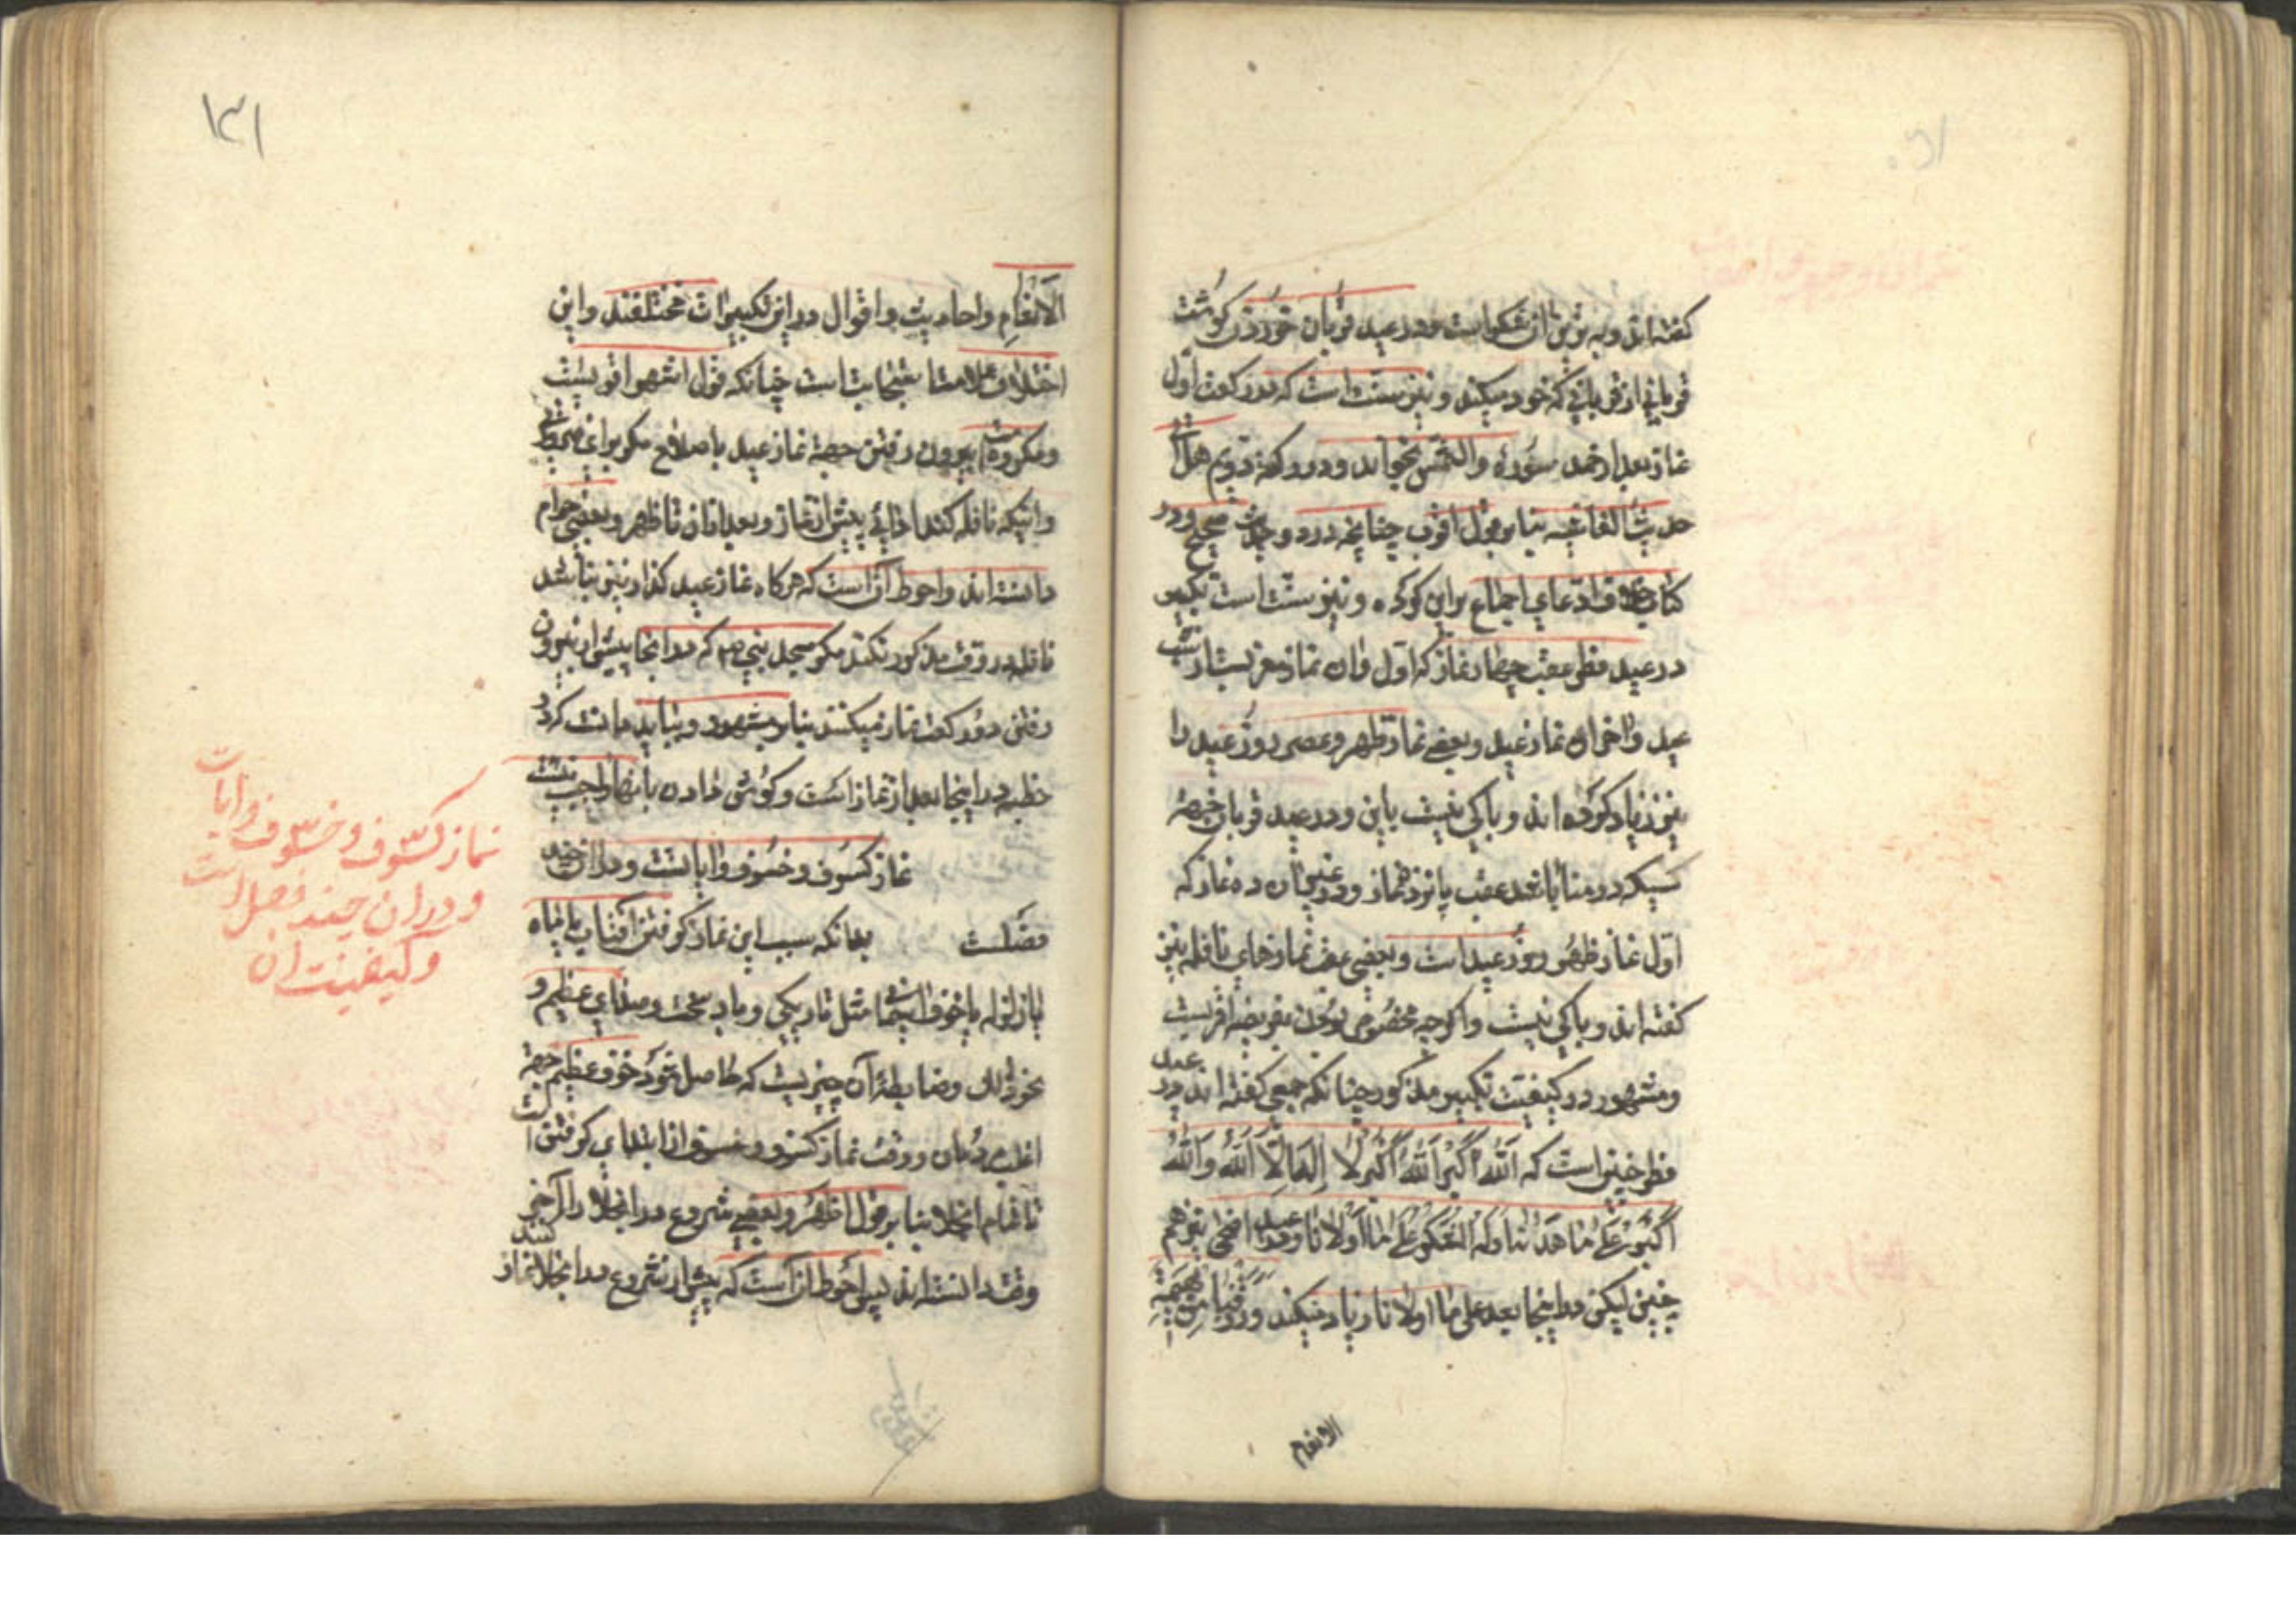 گفته‌اند و به تربت از شکر است و در عید قربان خوردن گوشت
قربانی از قربانی که خود میکند و نیز سنت است که در رکعت اول
نماز بعد از حمد سوره والشمس بخواند و در رکعة دویم هل اتیک
حدیث الغاشیه بنا بر قول اقرب چنانچه در دو حدیث صحیح و در
کتاب خلاف ادعای اجماع براین کرده و نیز سنت است تکبیر
در عید فطر عقب چهار نماز که اول ان نماز مغربست از شب
عید واخر ان نماز عید و بعضی نماز ظهر و عصر روز عید را
نیز زیاد کرده اند و باکی نیست باین و در عید قربان جهة
کسیکه در منا باشد عقب پانزده نماز و در غیر ان ده نماز که
اول نماز ظهر روز عید است و بعضی عقب نمازهای نافله نیز
گفته اند و باکی نیست واگرچه مخصوص بودن بفریضه اقربست
ومشهور در کیفیت تکبیر مذکور چنانکه جمعی گفته اند در عید
فطر چنین است که الله اکبر الله اکبر لا اله الا الله والله
اکبر علی ما هدانا وله الشکر علی ما اولانا ودر عید اضحی نیز هم
چنین لیکن در اینجا بعد علی ما اولانا زیاد میکند ورزقنا من بهیمة
الانعام
۱۳۱
الانعام واحادیث واقوال در این تکبیرات مختلفند واین
اختلاف علامت استحبابست چنانکه قول اشهر اقویست
ومکروه است بیرون رفتن جهة نماز عید با صلاح مگر برای ضرورتی
واینکه نافله کند ادائی پیش از نماز و بعد از ان تا ظهر و بعضی حرام
دانسته اند واحوط آنست که هرگاه نماز عید گذارنیز نباشد
نافله در وقت مذکور نکند مگر مسجد نبی ص که در انجا پیش از بیرون
رفتن دو رکعت نماز میکنند بنا بر مشهور و بباید دانست که در
خطبه در اینجا بعد از نماز است و گوش دادن بانها واجب نیست
نماز کسوف و خسوف وایاتست و در ان چند
فصلست بدانکه سبب این نماز گرفتن افتاب یا ماه
یا زلزله یا خوف اسمانی مثل تاریکی و باد سخت و صدای عظیم و
نحو ذلك وضابطه آن چیزیست که حاصل شود خوف عظیم جهة
اغلب مردمان و وقت نماز کسوف و خسوف از ابتدای گرفتن است
تا تمام انجلا بنا بر قول اظهر و بعضی شروع در انجلا را آخر
وقت دانسته اند پس احوط ان است که پیش از شروع در انجلا نماز کند
نماز کسوف و خسوف وایات
و در ان چند فصل است
و کیفیت ان